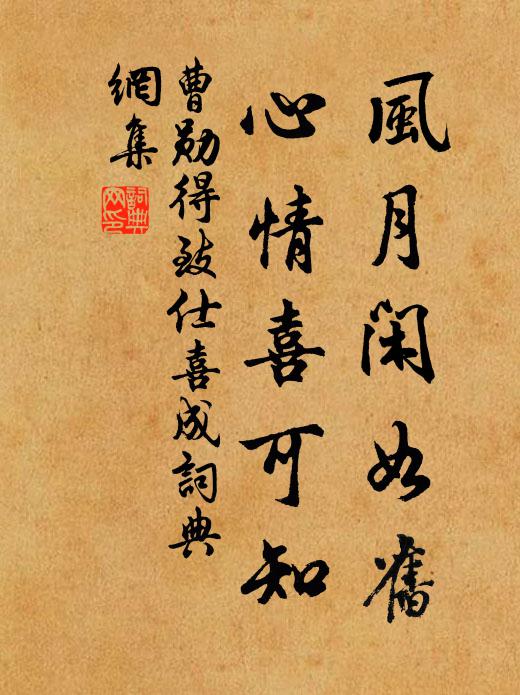 風月閑如舊
心情喜可知
曹勛得致仕喜成詞典
網集
詞典
网印